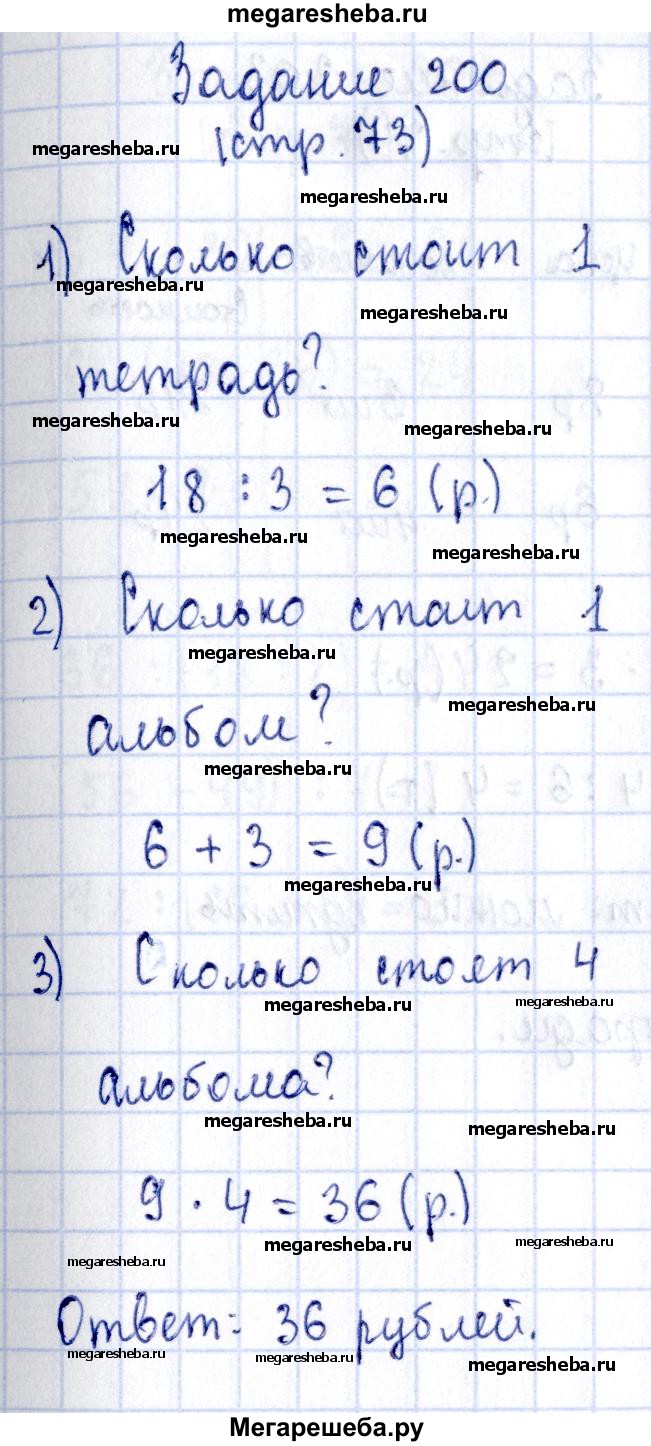 megaresheba.ru
Задание 200
megaresheba.ru
(стр. 73)
megaresheba.ru
1) Сколько стоит 1
megaresheba.ru
megaresheba.ru
тетрадь?
megaresheba.ru
megaresheba.ru
18 : 3 = 6 (р.)
megaresheba.ru
megaresheba.ru
2) Сколько стоит 1
megaresheba.ru
megaresheba.ru
альбом?
megaresheba.ru
6 + 3 = 9 (р.)
megaresheba.ru
3) Сколько стоят 4
megaresheba.ru
megaresheba.ru
альбома?
megaresheba.ru
megaresheba.ru
9 · 4 = 36 (р.)
megaresheba.ru
megaresheba.ru
megaresheba.ru
Ответ: 36 рублей.
megaresheba.ru
megaresheba.ru
megaresheba.ru
Мегарешеба.ру